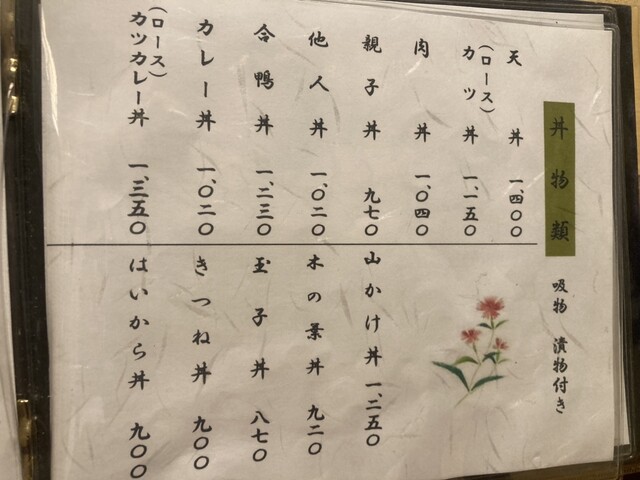 丼物類
吸物 漬物付き
天丼 一、四〇〇
(ロース)
カツ丼 一、一五〇
肉丼 一、〇四〇
親子丼 九七〇
他人丼 一、〇二〇
合鴨丼 一、二三〇
カレー丼 一、〇二〇
(ロース)
カツカレー丼 一、三五〇
山かけ丼 一、二五〇
木の葉丼 九二〇
玉子丼 八七〇
きつね丼 九〇〇
はいから丼 九〇〇